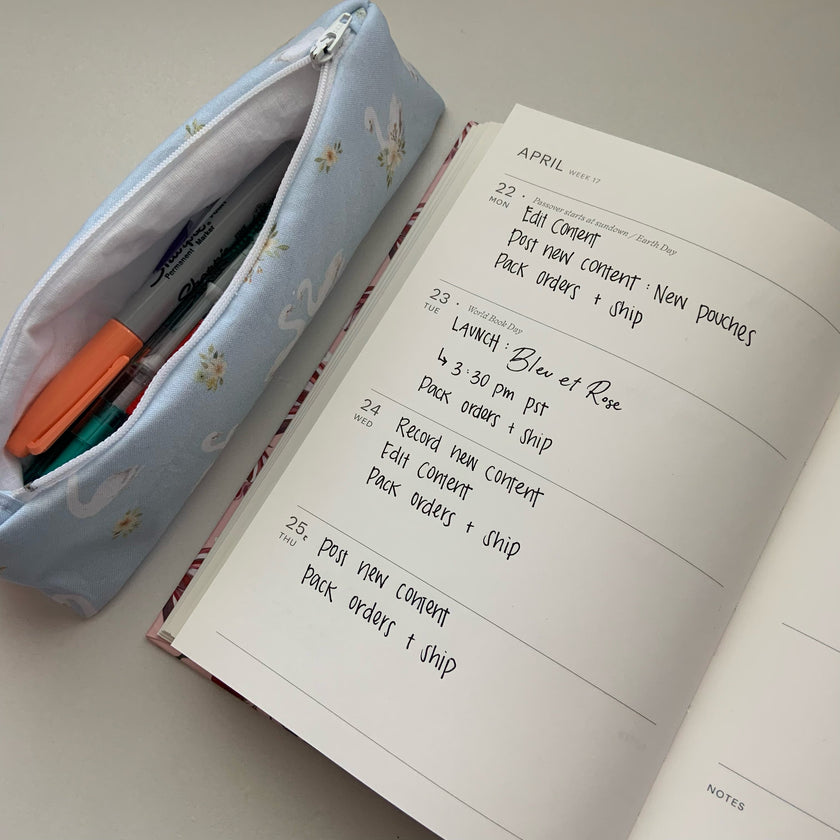 Sharpie
Permanent Marker
Sharpie
APRIL WEEK 17
22 MON
Passover starts at sundown / Earth Day
Edit Content
Post new content : New pouches
Pack orders + ship
23 TUE
World Book Day
LAUNCH : Bleu et Rose
↳ 3:30 pm pst
Pack orders + ship
24 WED
Record new content
Edit Content
Pack orders + ship
25 THU
Post new content
Pack orders + ship
NOTES